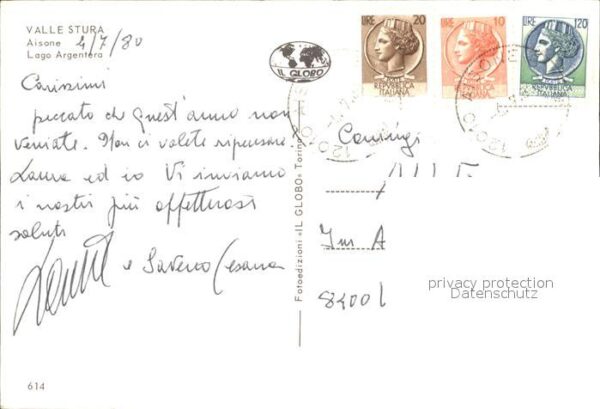 VALLE STURA
Aisone 4/7/80
Lago Argentera
Carissimi
peccato che quest'anno non
veniate. Non ci volete ripensare.
Laura ed io Vi inviamo
i nostri più affettuosi
saluti
e Saverio Cesana
614
Fotoedizioni «IL GLOBO» Torino
IL GLOBO
LIRE 20
REPVBBLICA
ITALIANA
LIRE 10
REPVBBLICA
ITALIANA
LIRE 120
REPVBBLICA
ITALIANA
12010
12010
Coniugi
A
privacy protection
Datenschutz